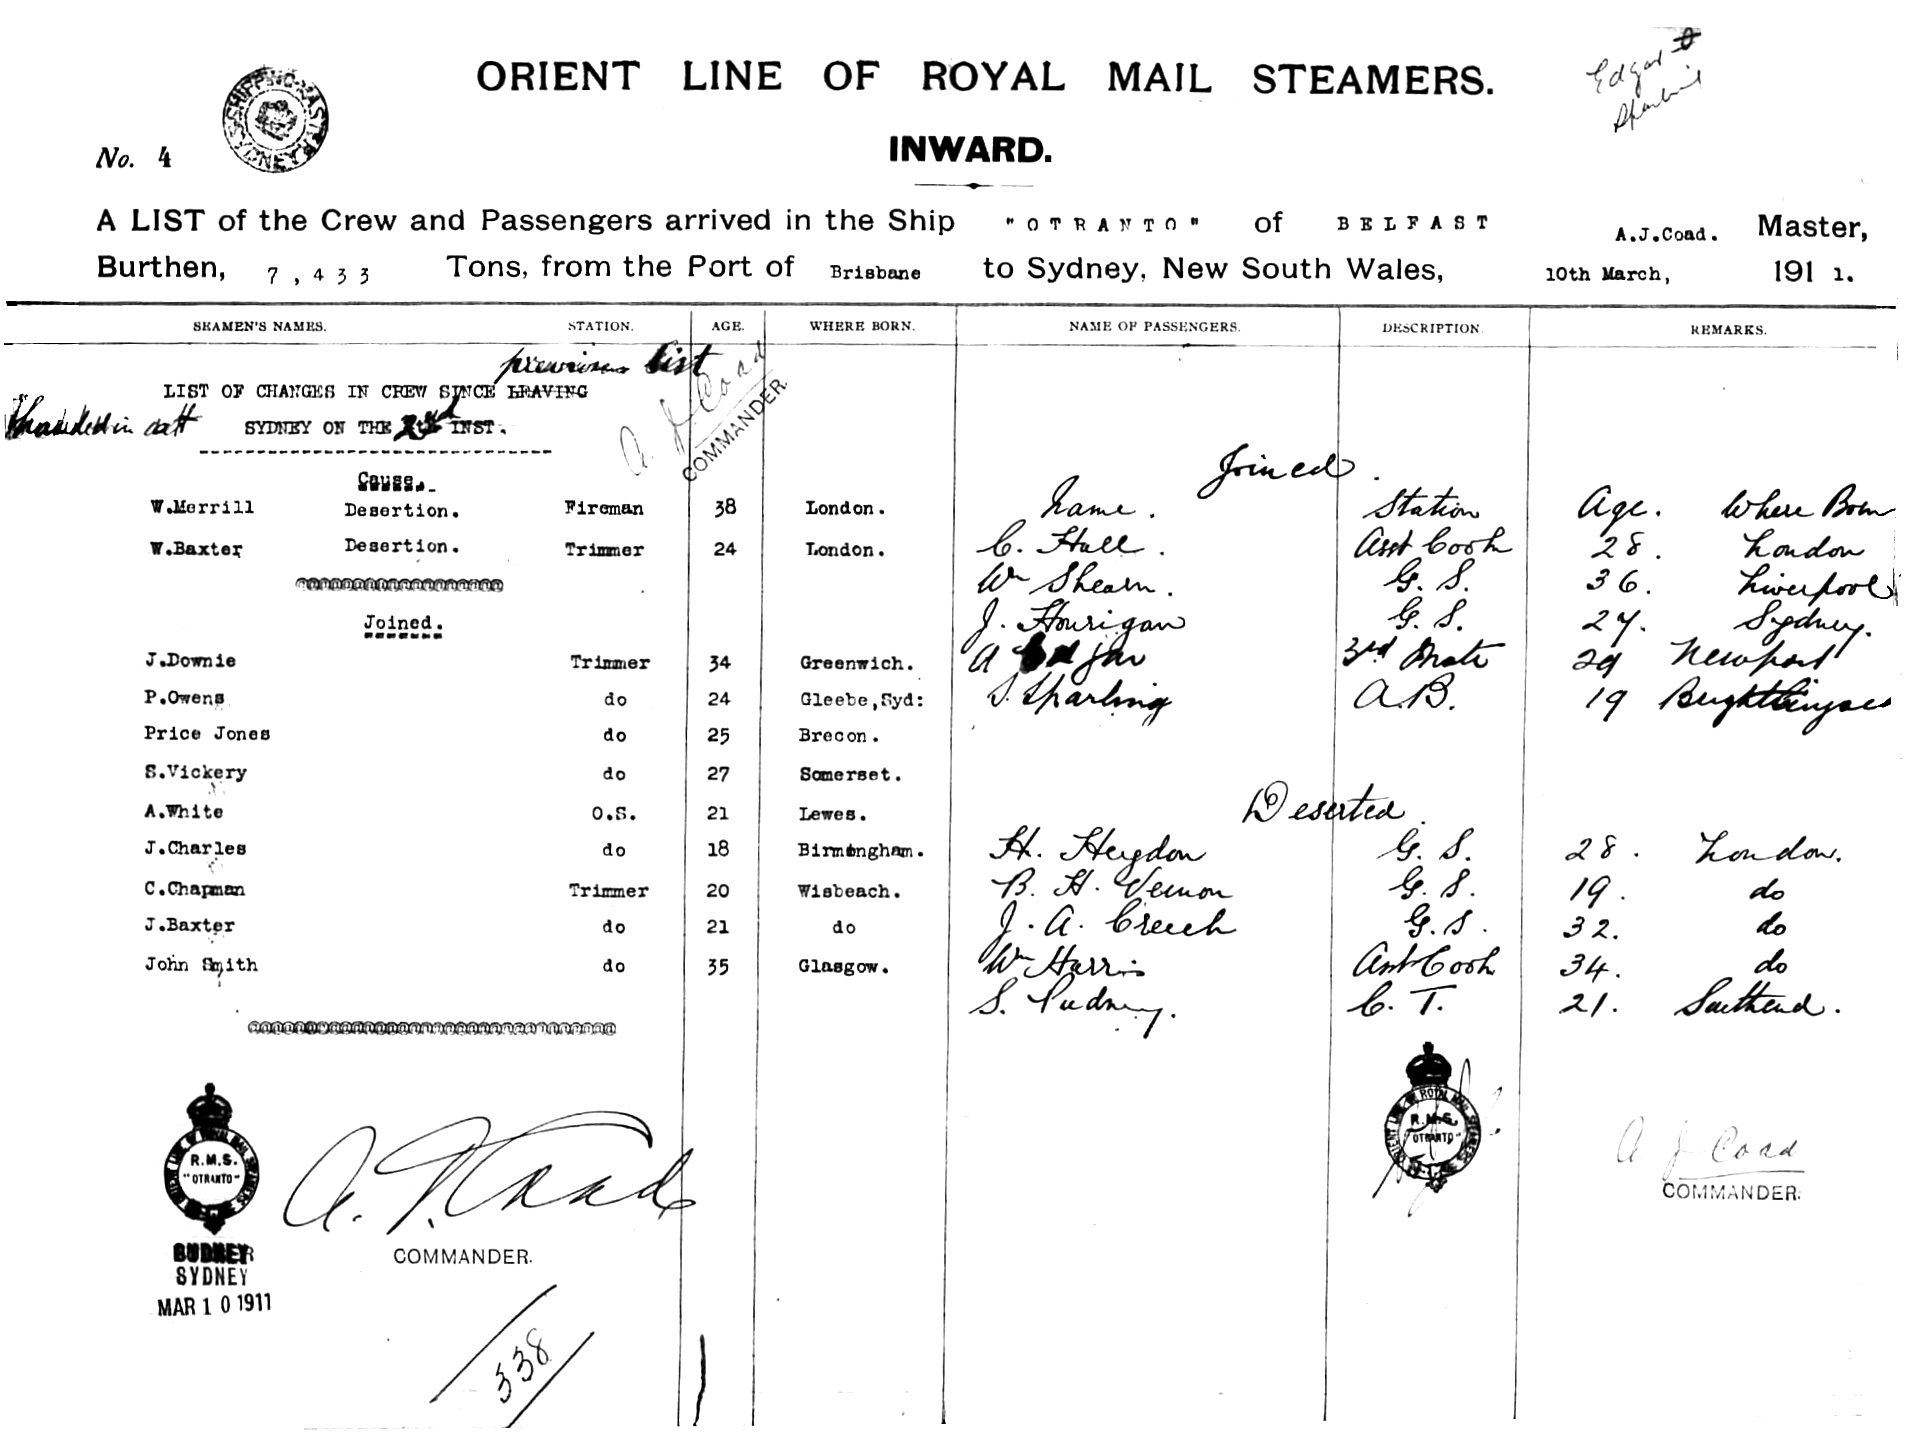 ORIENT LINE OF ROYAL MAIL STEAMERS.
Edgar
Sparling
SHIPPING MASTER SYDNEY
INWARD.
No. 4
A LIST of the Crew and Passengers arrived in the Ship "OTRANTO" of BELFAST A.J.Coad. Master,
Burthen, 7,433 Tons, from the Port of Brisbane to Sydney, New South Wales, 10th March, 191 1.
SEAMEN'S NAMES. STATION. AGE. WHERE BORN. NAME OF PASSENGERS. DESCRIPTION. REMARKS.
previous list
LIST OF CHANGES IN CREW SINCE LEAVING
handed in att SYDNEY ON THE 2nd INST.
A J Coad
COMMANDER.
Cause.
W.Merrill Desertion. Fireman 38 London.
W.Baxter Desertion. Trimmer 24 London.
Joined.
J.Downie Trimmer 34 Greenwich.
P.Owens do 24 Gleebe,Syd:
Price Jones do 25 Brecon.
S.Vickery do 27 Somerset.
A.White O.S. 21 Lewes.
J.Charles do 18 Birmingham.
C.Chapman Trimmer 20 Wisbeach.
J.Baxter do 21 do
John Smith do 35 Glasgow.
Joined.
Name. Station Age. Where Born
C. Hall. Asst Cook 28. London
Wm Shearn. G. S. 36. Liverpool
J. Hourigan G. S. 27. Sydney.
A Edgar 3rd Mate 29 Newport
S. Sparling A.B. 19 Brightlingsea
Deserted.
H. Heydon G. S. 28. London.
B. H. Vernon G. S. 19. do
J. A. Creech G.S. 32. do
Wm Harris Asst Cook 34. do
S. Pudney. C. T. 21. Southend.
ORIENT LINE OF ROYAL MAIL STEAMERS
R.M.S.
"OTRANTO"
SYDNEY
MAR 10 1911
A. J. Coad
COMMANDER.
338
ORIENT LINE OF ROYAL MAIL STEAMERS
R.M.S.
"OTRANTO"
A J Coad
COMMANDER.